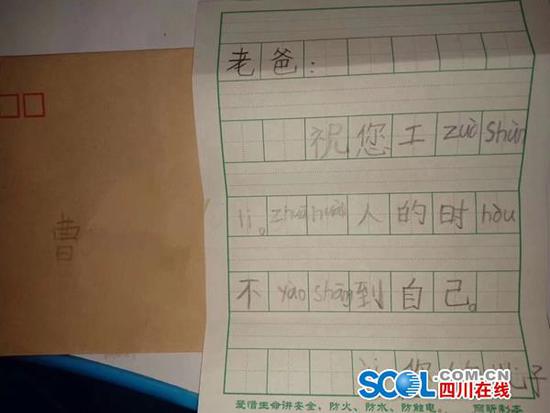 曹
老爸：
祝您工 zuò shùn
lì。zhuā huài 人的时 hòu
不 yào shāng 到自己。
您的儿子
爱惜生命讲安全、防火、防水、防触电。
SCOL.COM.CN
四川在线